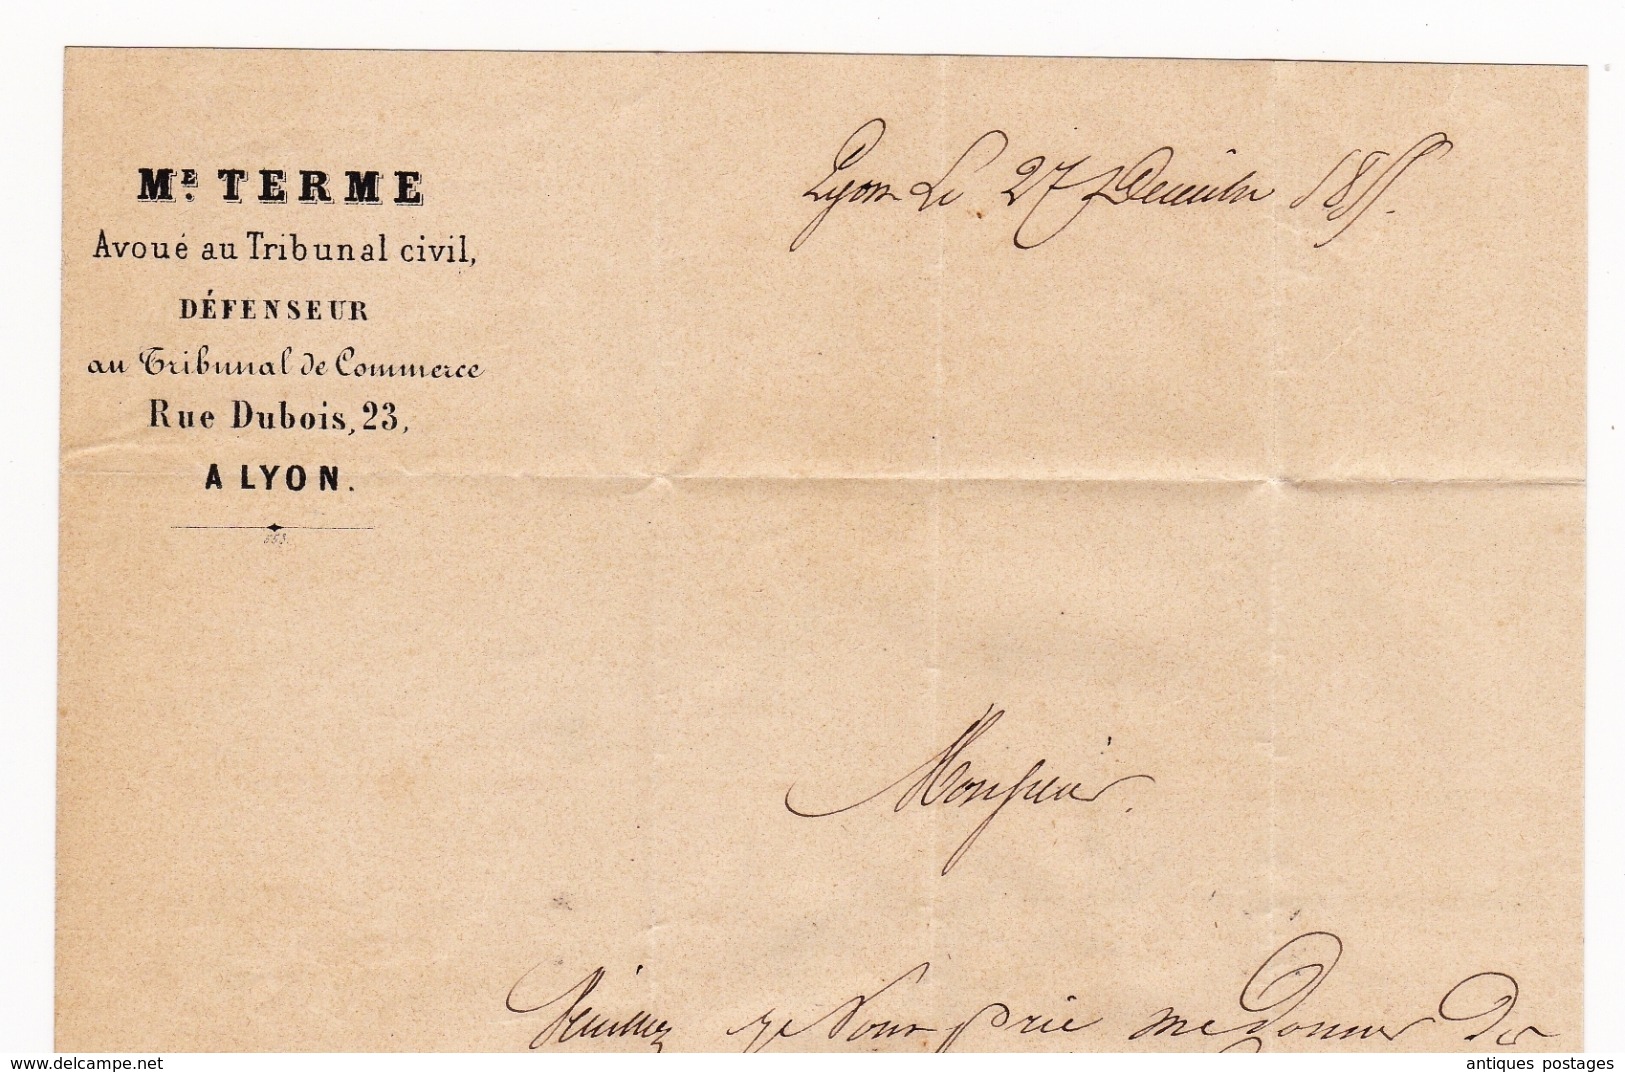 ME. TERME
Avoué au Tribunal civil,
DÉFENSEUR
au Tribunal de Commerce
Rue Dubois, 23,
A LYON.
Lyon Le 27 Décembre 1855.
Monsieur.
Veuillez je vous prie me donner des
www.delcampe.net
antiques postages